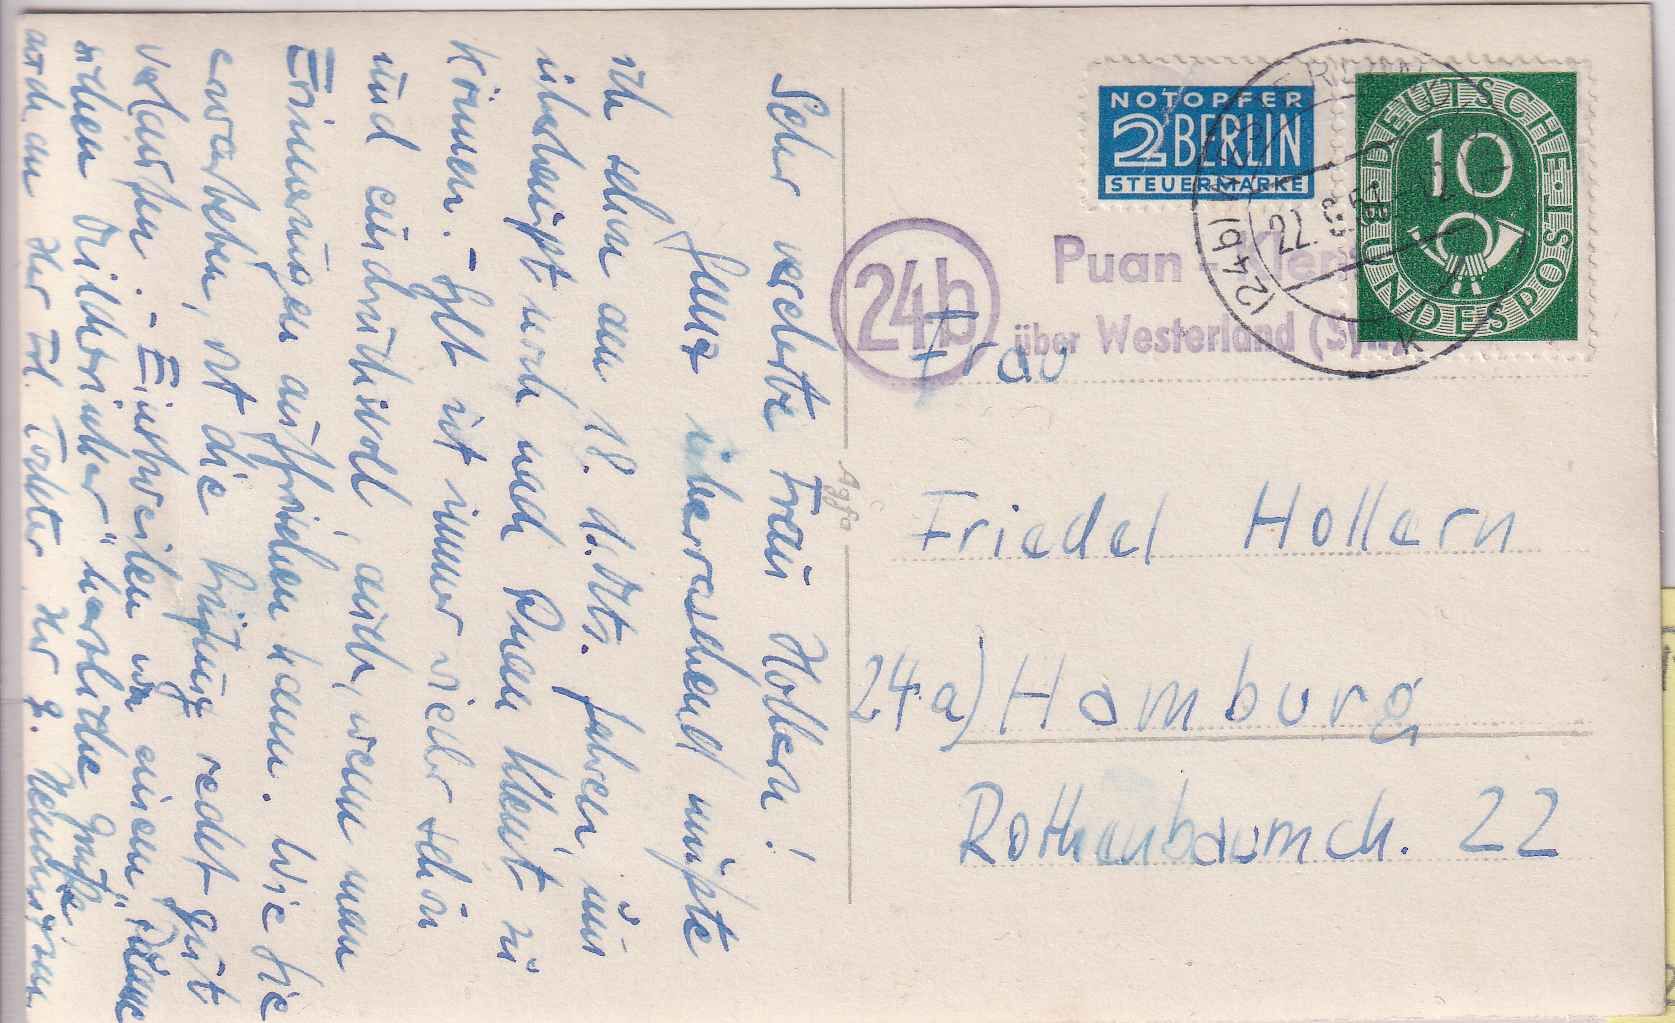 Sehr verehrte Frau Hollern!
Ganz überraschend mußte
ich schon am 18. ds. Mts. fahren, um
überhaupt noch nach Puan Klent zu
können. - Sylt ist immer wieder schön
und eindrucksvoll, auch, wenn man
Erinnerungen auffrischen kann. Wie Sie
erwarteten, ist die
redet gut
- Einstweilen von einem
herzliche Grüße
auch an Ihr Frl. Tochter, Ihr
Agfa
NOTOPFER
2 BERLIN
STEUERMARKE
DEUTSCHE BUNDESPOST
10
(24b)
22.
K
24b
Puan
über Westerland (Sylt)
Frau
Friedel Hollern
24a) Hamburg
Rothenbaumch. 22